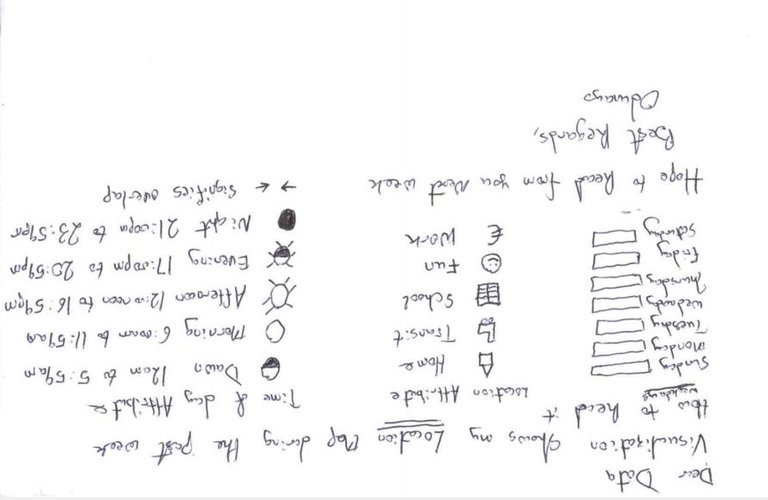 Dear Data
Visualization shows my Location Map during the past week
How to Read it
weekdays
Sunday
Monday
Tuesday
Wednesday
Thursday
Friday
Saturday
Location Attribute
Home
Transit
School
Fun
Work
Time of day Attribute
Dawn 12am to 5:59am
Morning 6:00am to 11:59am
Afternoon 12:00noon to 16:59pm
Evening 17:00pm to 20:59pm
Night 21:00pm to 23:59pm
→ ← Signifies overlap
Hope to Read from you Next week
Best Regards,